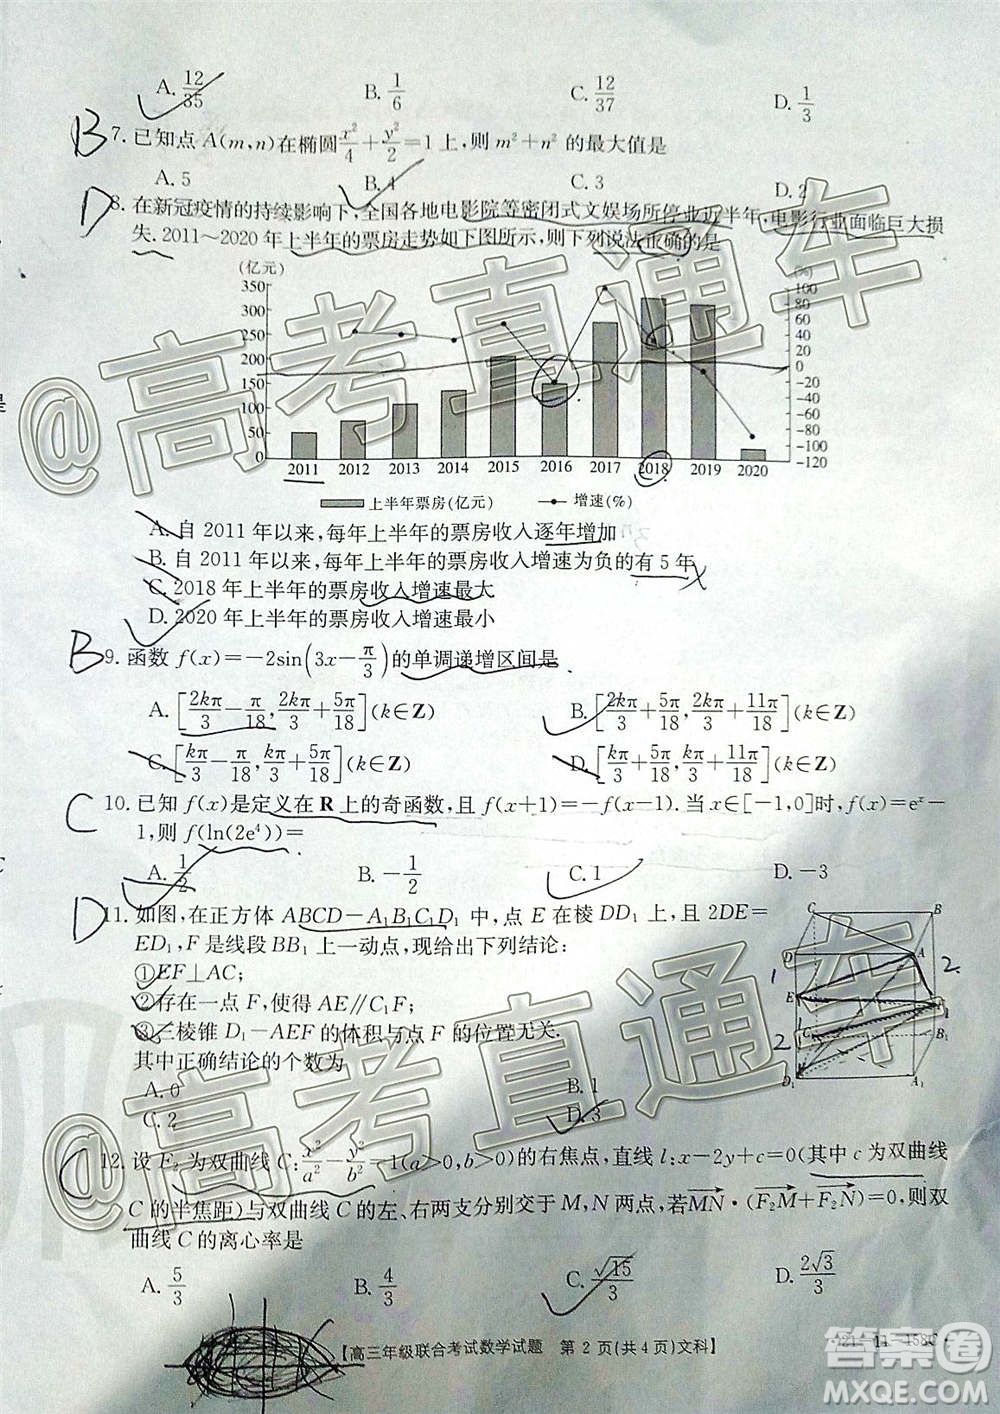 A. 12/35 B. 1/6 C. 12/37 D. 1/3
B 7. 已知点 A(m,n)在椭圆x²/4+y²/2=1上,则 m²+n² 的最大值是
A. 5 B. 4 C. 3 D. 2
D 8. 在新冠疫情的持续影响下,全国各地电影院等密闭式文娱场所停业近半年,电影行业面临巨大损
失. 2011～2020 年上半年的票房走势如下图所示,则下列说法正确的是
(亿元) (%)
350 300 250 200 150 100 50 0
100 80 60 40 20 0 -20 -40 -60 -80 -100 -120
2011 2012 2013 2014 2015 2016 2017 2018 2019 2020
上半年票房(亿元) 增速(%)
A. 自 2011 年以来,每年上半年的票房收入逐年增加
B. 自 2011 年以来,每年上半年的票房收入增速为负的有 5 年
C. 2018 年上半年的票房收入增速最大
D. 2020 年上半年的票房收入增速最小
B 9. 函数 f(x)=-2sin(3x-π/3)的单调递增区间是
A. [2kπ/3-π/18,2kπ/3+5π/18](k∈Z) B. [2kπ/3+5π/18,2kπ/3+11π/18](k∈Z)
C. [kπ/3-π/18,kπ/3+5π/18](k∈Z) D. [kπ/3+5π/18,kπ/3+11π/18](k∈Z)
C 10. 已知 f(x)是定义在 R 上的奇函数,且 f(x+1)=-f(x-1). 当 x∈[-1,0]时,f(x)=eˣ-
1,则 f(ln(2e⁴))=
A. 1/2 B. -1/2 C. 1 D. -3
D 11. 如图,在正方体 ABCD-A₁B₁C₁D₁ 中,点 E 在棱 DD₁ 上,且 2DE=
ED₁,F 是线段 BB₁ 上一动点,现给出下列结论:
①EF⊥AC;
②存在一点 F,使得 AE∥C₁F;
③三棱锥 D₁-AEF 的体积与点 F 的位置无关.
其中正确结论的个数为
A. 0 B. 1
C. 2 D. 3
C B D A E B₁ D₁ A₁
1 2 2
C 12. 设 F₂ 为双曲线 C:x²/a²-y²/b²=1(a>0,b>0)的右焦点,直线 l:x-2y+c=0(其中 c 为双曲线
C 的半焦距)与双曲线 C 的左、右两支分别交于 M,N 两点,若MN·(F₂M+F₂N)=0,则双
曲线 C 的离心率是
A. 5/3 B. 4/3 C. √15/3 D. 2√3/3
【高三年级联合考试数学试题 第 2 页(共 4 页)文科】
@高考直通车
@高考直通车
答案圈
MXQE.COM